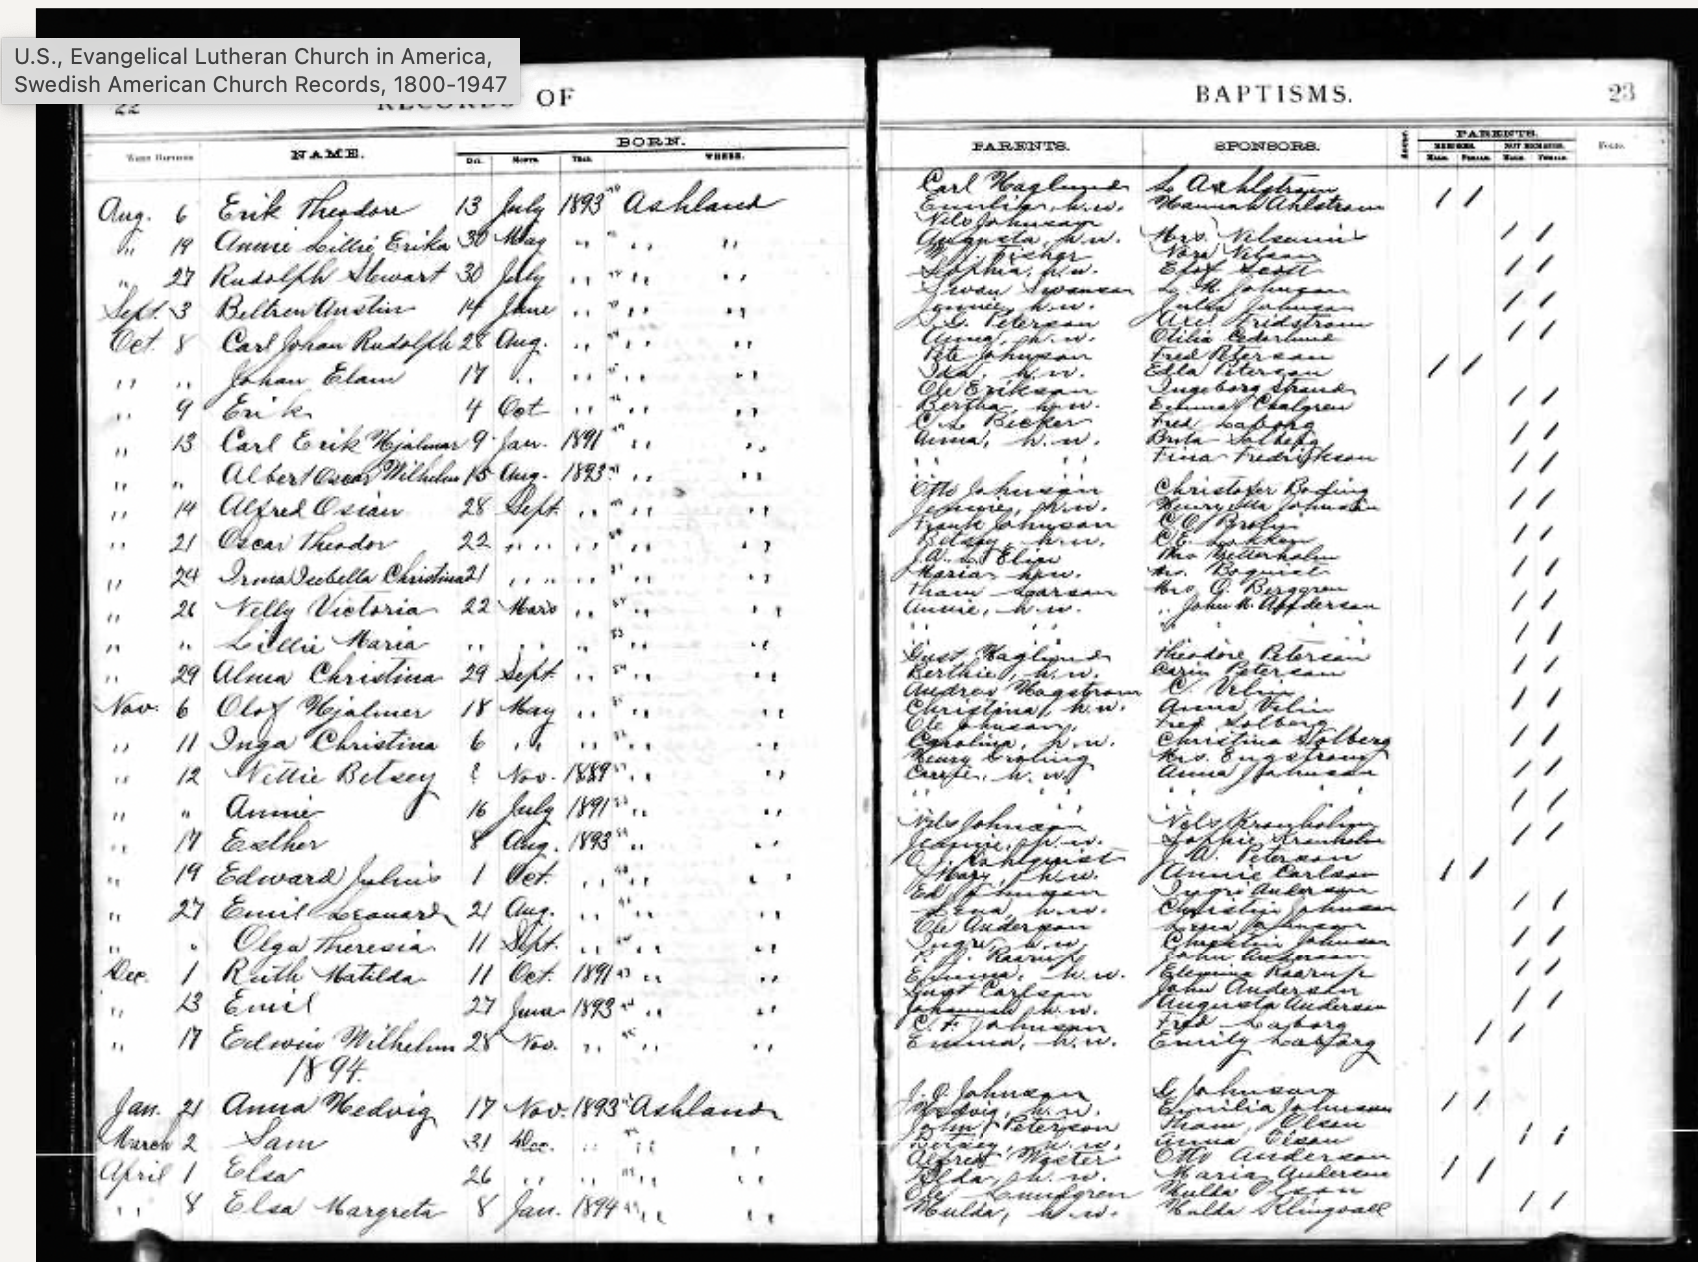 U.S., Evangelical Lutheran Church in America,
Swedish American Church Records, 1800-1947
22 RECORDS OF
BORN.
WHEN BAPTIZED NAME. DAY. MONTH. YEAR. WHERE.
Aug. 6 Erik Theodore 13 July 1893 Ashland
" 19 Annie Lillie Erika 30 May " " "
" 27 Rudolph Stewart 30 July " " "
Sept. 3 Austin 14 June " " "
Oct. 8 Carl Johan Rudolph 28 Aug. " " "
" " Johan Elam 17 " " " "
" 9 Erik 4 Oct " " "
" 13 Carl Erik Hjalmar 9 Jan. 1891 " "
" " Albert Oscar Wilhelm 15 Aug. 1893 " "
" 14 Alfred Osian 28 Sept. " " "
" 21 Oscar Theodor 22 " " " "
" 24 Irma Isabella Christina 21 " " " "
" 26 Nelly Victoria 22 Mars " " "
" " Lillie Maria " " " " "
" 29 Alma Christina 29 Sept. " " "
Nov. 6 Olof Hjalmer 18 May " " "
" 11 Inga Christina 6 " " " "
" 12 Nettie Betsey ? Nov. 1889 " "
" " Annie 16 July 1891 " "
" 17 Esther 8 Aug. 1893 " "
" 19 Edward Julius 1 Oct. " " "
" 27 Emil Leonard 21 Aug. " " "
" " Olga Theresia 11 Sept. " " "
Dec. 1 Ruth Matilda 11 Oct. 1891 " "
" 13 Emil 27 June 1893 " "
" 17 Edwin Wilhelm 28 Nov. " " "
1894.
Jan. 21 Anna Hedvig 17 Nov. 1893 Ashland
March 2 Sam 31 Dec. " " "
April 1 Elsa 26 " " " "
" 8 Elsa Margreta 8 Jan. 1894 " "
BAPTISMS. 23
PARENTS. SPONSORS. PARENTS.
MEMBERS. NOT MEMBERS.
MALE. FEMALE. MALE. FEMALE.
Carl Haglund L. Ahlstrom
Emilia, h.w. Hannah Ahlstrom
Nils Johnson
Augusta, h.w. Mrs.
Fisher Nilson
Sophia, h.w. Scott
Swan Swanson L. M. Johnson
Jennie, h.w. Julia Johnson
Peterson Axel Fridstrom
Anna, h.w. Otilia Cederlund
Pete Johnson Fred Peterson
Ida, h.w. Ella Peterson
Ole Erikson Ingeborg Strand
Bertha, h.w. Emma
Becker Fred Laborg
Anna, h.w. Solberg
" " Tina Fredrikson
Otto Johnson Christofer
Jennie, h.w. Johnson
Frank Johnson
Betsey, h.w.
Maria, h.w. Mrs.
Tham Larson Mrs. G. Berggren
Annie, h.w. " John
" " " "
Gust Haglund Theodore Peterson
Berthie, h.w. Carin Peterson
Andrew Hagstrom C. Velin
Christina, h.w. Anna Velin
Ole Johnson, Fred Solberg
Carolina, h.w. Christina Solberg
Henry Mrs. Engstrom
h.w. Anna Johnson
" " " "
Nils Johnson Nels Kronholm
Jennie, h.w. Sophie Kronholm
A. Peterson
Mary, h.w. Annie Carlson
Ed Johnson Ingri Anderson
Lena, h.w. Christin Johnson
Ole Anderson Lena Johnson
Ingri, h.w. Christin Johnson
Raarup John Anderson
Emma, h.w. Raarup
Gust Carlson John Anderson
Johannah h.w. Augusta Anderson
C. F. Johnson Fred Laborg
Emma, h.w. Emily Laborg
J. O. Johnson Johnson
Hedvig, h.w. Emilia Johnson
John Peterson Tham, Olson
Betsey, h.w. Anna Olson
Alfred Wester Otto Anderson
h.w. Maria Anderson
Lundgren Hulda Olson
Hulda, h.w. Hulda Klingvall